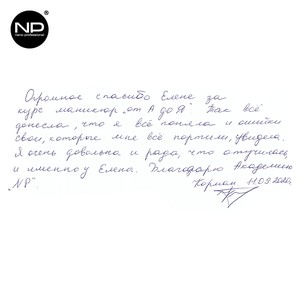 NP
nano professional
Огромное спасибо Елене за
курс маникюр „от А до Я" Так всё
донесла, что я всё поняла и ошибки
свои, которые мне всё портили, увидела.
Я очень довольна и рада, что отучилась
и именно у Елена. Благодарю Академию
„NP".
Корман 11.09.2020г.